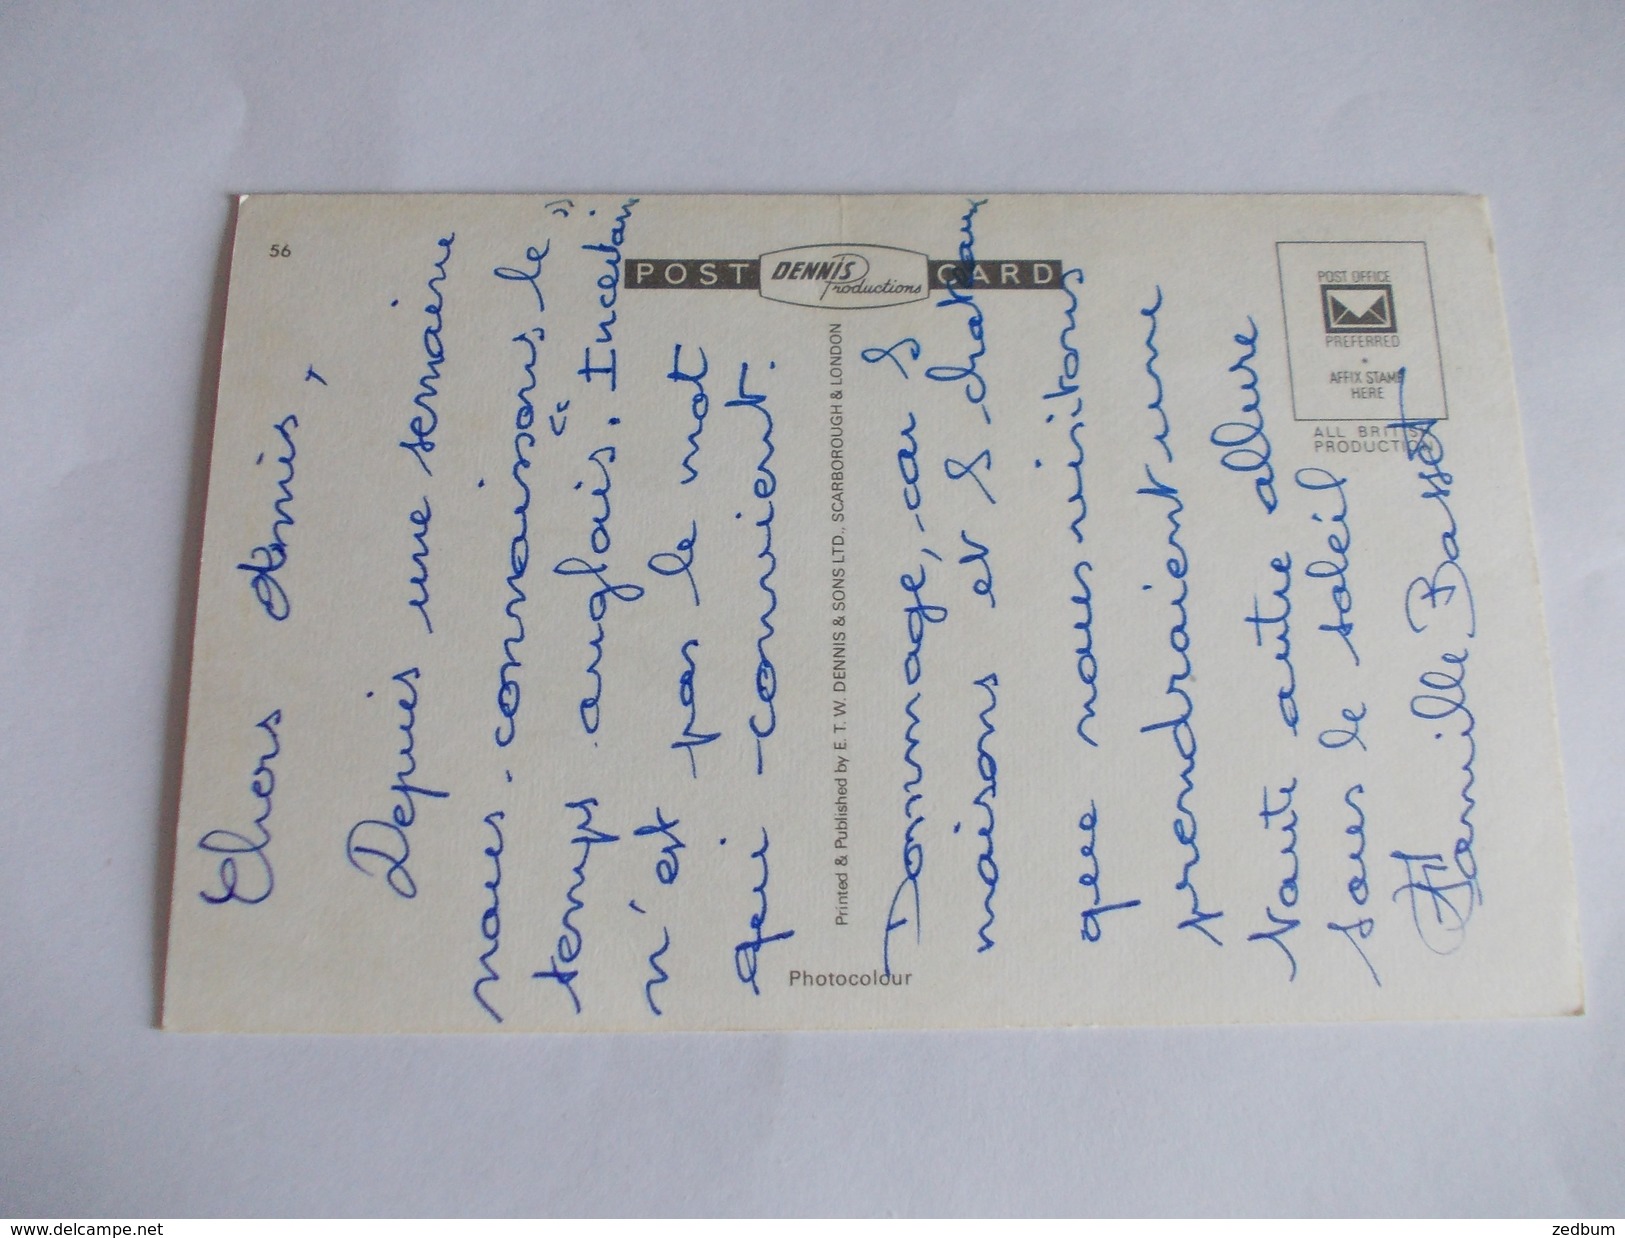 56
POST CARD
DENNIS
Productions
Printed & Published by E. T. W. DENNIS & SONS LTD., SCARBOROUGH & LONDON
Photocolour
POST OFFICE
PREFERRED
AFFIX STAMP
HERE
ALL BRITISH
PRODUCTION
Chers Amis,
Depuis une semaine
nous connaissons le "
temps anglais". Incertain
n'est pas le mot
qui convient.
Dommage, car
maisons et chateaux
que nous visitons
prendraient une
toute autre allure
sous le soleil
Famille Basset
www.delcampe.net
zedbum